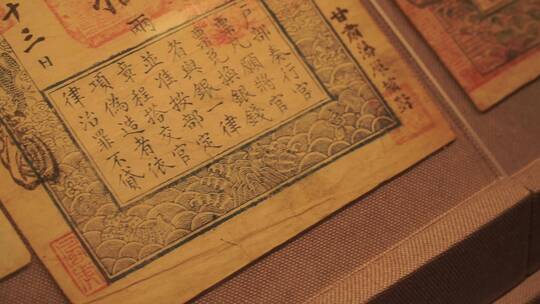 甘肅
戶部奏行官
票凡願將官
票兌換銀錢
者與銀一律
並准按部定
章程搭交官
項偽造者依
律治罪不貸
兩
十三日